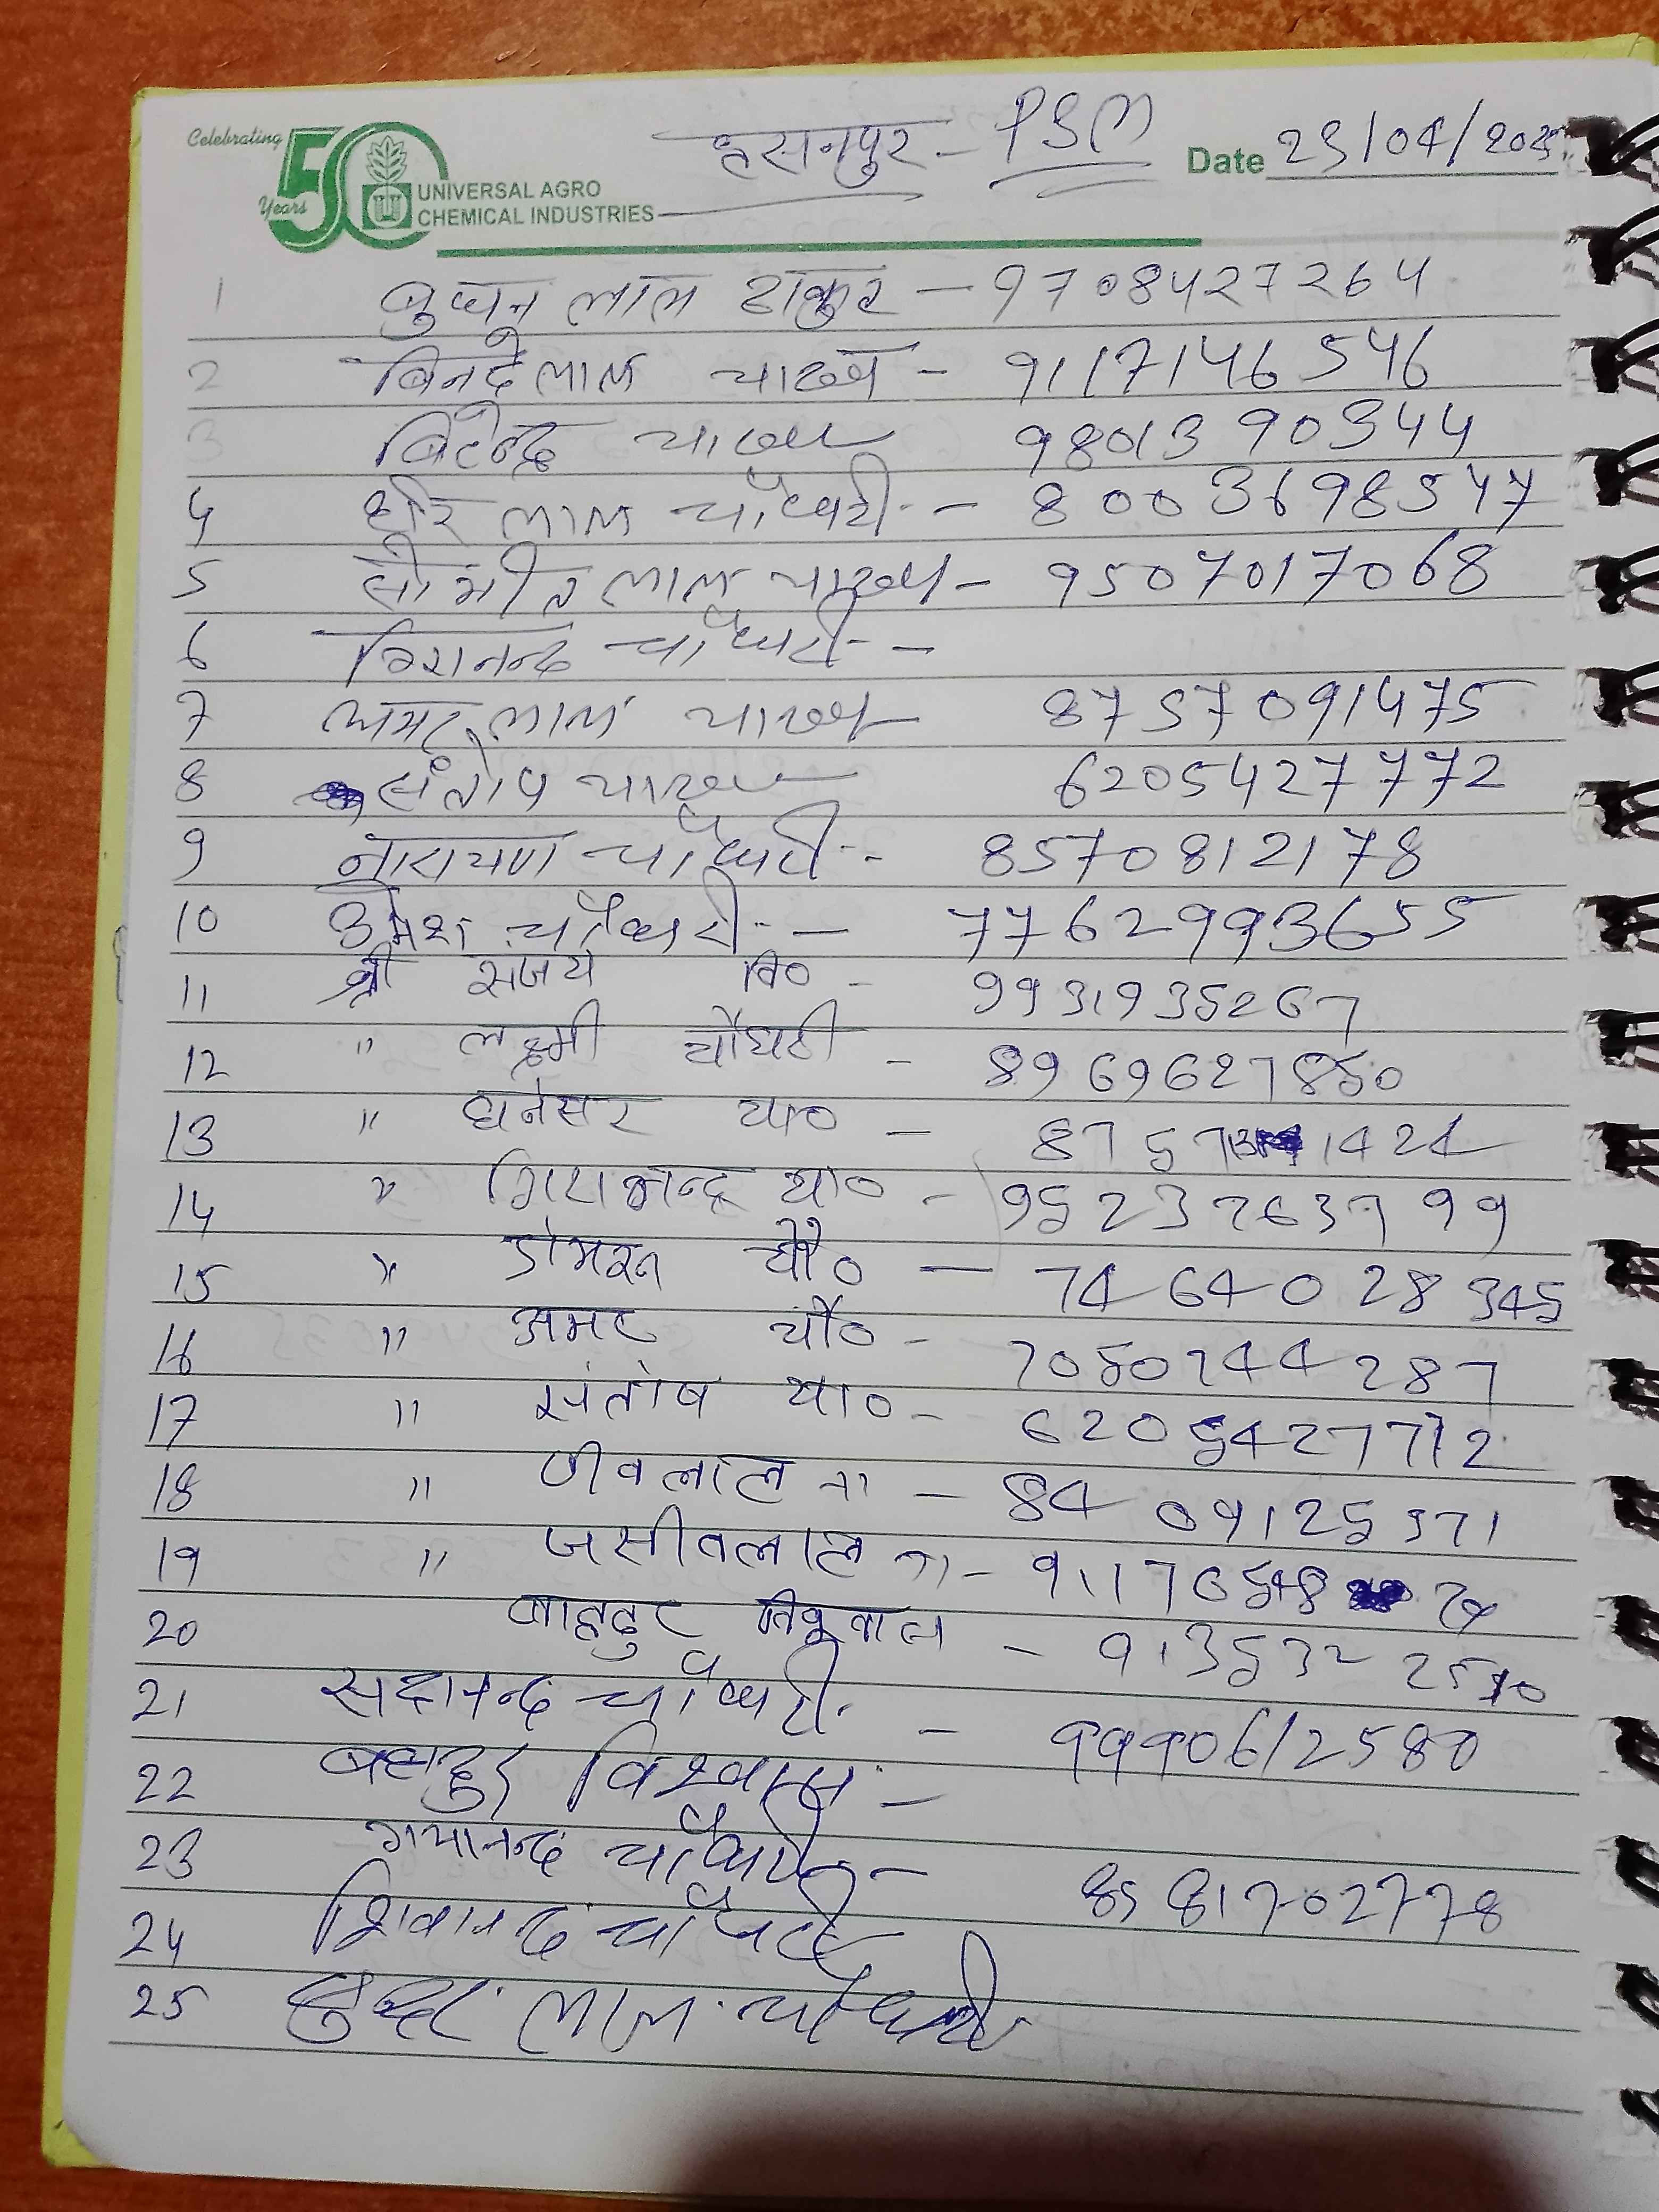 Celebrating
50
Years
UNIVERSAL AGRO
CHEMICAL INDUSTRIES
हसनपुर - PSM
Date 23/04/2025
1 बुधन लाल ठाकुर - 9708427264
2 बिनदेलाल यादव - 9117146546
3 बिरेन्द्र यादव 9801390344
4 लाल चौधरी - 8003698547
5 लाल यादव - 9507017068
6 चौधरी -
7 अमर लाल यादव 8757091475
8 संतोष यादव 6205427772
9 नारायण चौधरी - 8570812178
10 उमेश चौधरी - 7762993655
11 श्री संजय वि० - 9931935267
12 " लक्ष्मी चौधरी - 8969627850
13 " धनेसर या० - 8757131424
14 " या० - 9523763799
15 " डोमरन चौ० - 7464028345
16 " अमर चौ० - 7050744287
17 " संतोष या० - 6205427772
18 " जीवलाल " - 8409125371
19 " जसीवलाल " - 91176548
20 बाहदुर - 913532
21 सदानन्द चौधरी - 9990612580
22 बहादुर विश्वास -
23 गयानन्द चौधरी - 8581702778
24 शिवानन्द चौधरी
25 लाल चौधरी